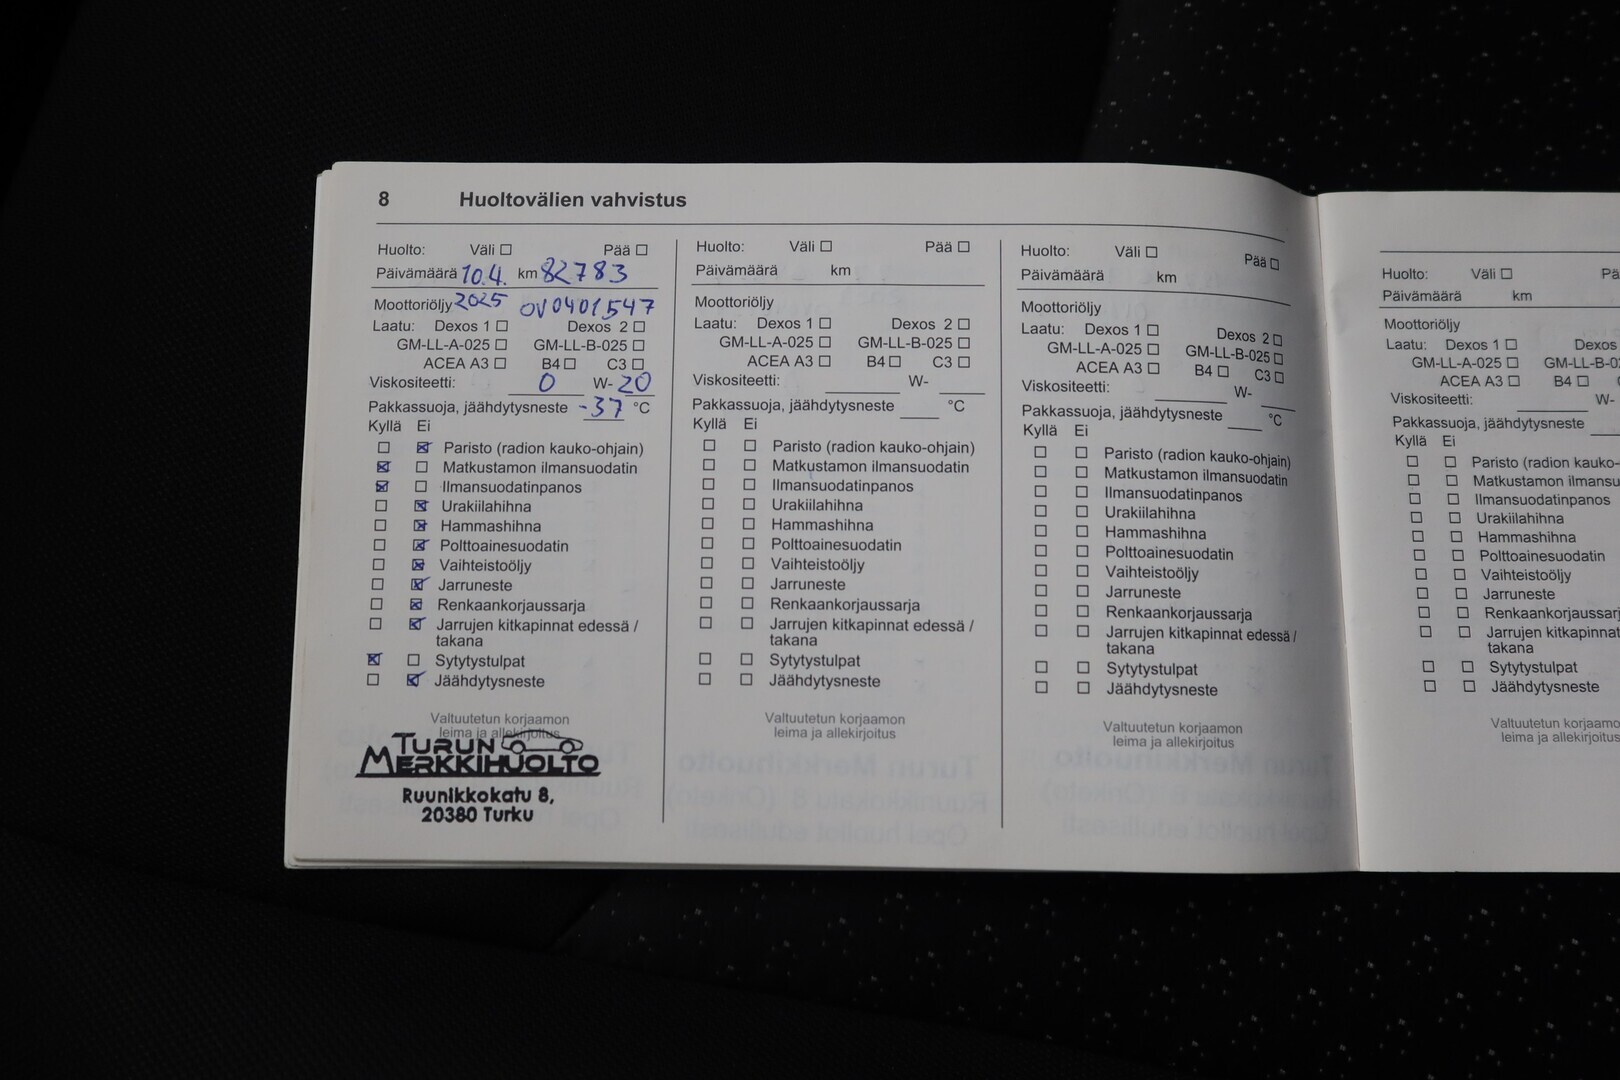 8 Huoltovälien vahvistus
Huolto: Väli ☐ Pää ☐
Päivämäärä 10.4. km 82783
Moottoriöljy 2025 OV0401547
Laatu: Dexos 1 ☐ Dexos 2 ☐
GM-LL-A-025 ☐ GM-LL-B-025 ☐
ACEA A3 ☐ B4 ☐ C3 ☐
Viskositeetti: 0 W- 20
Pakkassuoja, jäähdytysneste -37 °C
Kyllä Ei
☐ ☒ Paristo (radion kauko-ohjain)
☒ ☐ Matkustamon ilmansuodatin
☒ ☐ Ilmansuodatinpanos
☐ ☒ Urakiilahihna
☐ ☒ Hammashihna
☐ ☒ Polttoainesuodatin
☐ ☒ Vaihteistoöljy
☐ ☒ Jarruneste
☐ ☒ Renkaankorjaussarja
☐ ☒ Jarrujen kitkapinnat edessä /
takana
☒ ☐ Sytytystulpat
☐ ☒ Jäähdytysneste
Valtuutetun korjaamon
leima ja allekirjoitus
TURUN
MERKKIHUOLTO
Ruunikkokatu 8,
20380 Turku
Huolto: Väli ☐ Pää ☐
Päivämäärä km
Moottoriöljy
Laatu: Dexos 1 ☐ Dexos 2 ☐
GM-LL-A-025 ☐ GM-LL-B-025 ☐
ACEA A3 ☐ B4 ☐ C3 ☐
Viskositeetti: W-
Pakkassuoja, jäähdytysneste °C
Kyllä Ei
☐ ☐ Paristo (radion kauko-ohjain)
☐ ☐ Matkustamon ilmansuodatin
☐ ☐ Ilmansuodatinpanos
☐ ☐ Urakiilahihna
☐ ☐ Hammashihna
☐ ☐ Polttoainesuodatin
☐ ☐ Vaihteistoöljy
☐ ☐ Jarruneste
☐ ☐ Renkaankorjaussarja
☐ ☐ Jarrujen kitkapinnat edessä /
takana
☐ ☐ Sytytystulpat
☐ ☐ Jäähdytysneste
Valtuutetun korjaamon
leima ja allekirjoitus
Huolto: Väli ☐ Pää ☐
Päivämäärä km
Moottoriöljy
Laatu: Dexos 1 ☐ Dexos 2 ☐
GM-LL-A-025 ☐ GM-LL-B-025 ☐
ACEA A3 ☐ B4 ☐ C3 ☐
Viskositeetti: W-
Pakkassuoja, jäähdytysneste °C
Kyllä Ei
☐ ☐ Paristo (radion kauko-ohjain)
☐ ☐ Matkustamon ilmansuodatin
☐ ☐ Ilmansuodatinpanos
☐ ☐ Urakiilahihna
☐ ☐ Hammashihna
☐ ☐ Polttoainesuodatin
☐ ☐ Vaihteistoöljy
☐ ☐ Jarruneste
☐ ☐ Renkaankorjaussarja
☐ ☐ Jarrujen kitkapinnat edessä /
takana
☐ ☐ Sytytystulpat
☐ ☐ Jäähdytysneste
Valtuutetun korjaamon
leima ja allekirjoitus
Huolto: Väli ☐ Pä
Päivämäärä km
Moottoriöljy
Laatu: Dexos 1 ☐ Dexos
GM-LL-A-025 ☐ GM-LL-B-0
ACEA A3 ☐ B4 ☐
Viskositeetti: W-
Pakkassuoja, jäähdytysneste
Kyllä Ei
☐ ☐ Paristo (radion kauko-
☐ ☐ Matkustamon ilmansu
☐ ☐ Ilmansuodatinpanos
☐ ☐ Urakiilahihna
☐ ☐ Hammashihna
☐ ☐ Polttoainesuodatin
☐ ☐ Vaihteistoöljy
☐ ☐ Jarruneste
☐ ☐ Renkaankorjaussarj
☐ ☐ Jarrujen kitkapinnat
takana
☐ ☐ Sytytystulpat
☐ ☐ Jäähdytysneste
Valtuutetun korjaamo
leima ja allekirjoitus